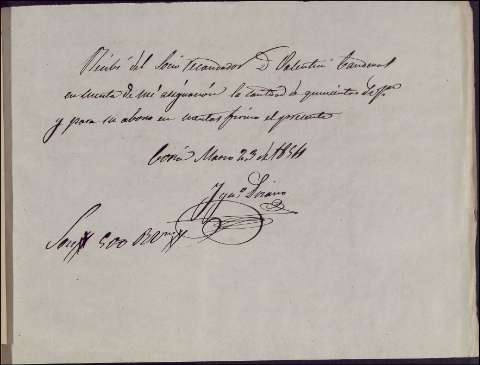 Recibí del Socio Recaudador D. Valentin Candenal
en cuenta de mi asignacion la cantidad de quinientos
y para su abono en cuentas firmo el presente
Marzo 23 de 1854
Ygn.º
Son 500